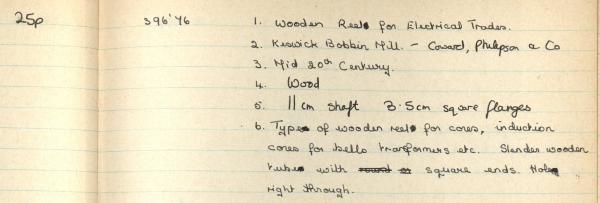 25p 396'76 1. Wooden Reel for Electrical Trades.
2. Keswick Bobbin Mill. - Coward, Philipson & Co
3. Mid 20th Century.
4. Wood
5. 11cm shaft 3.5cm square flanges
6. Type of wooden reel for cores, induction
cores for bells transformers etc. Slender wooden
tube with round or square ends. Hole
right through.